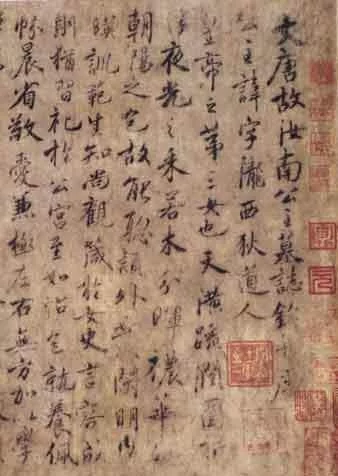 大唐故汝南公主墓誌銘并序
公主諱字隴西狄道人
皇帝之第三女也天潢疏潤圓折
浮夜光之采若木分暉穠華照
朝陽之色故能聡穎外發閑明内
暎訓範生知尚觀箴於女史言容成
則猶習礼於公宮至如怡色就養佩
帉晨省敬愛兼極左右無方加以學